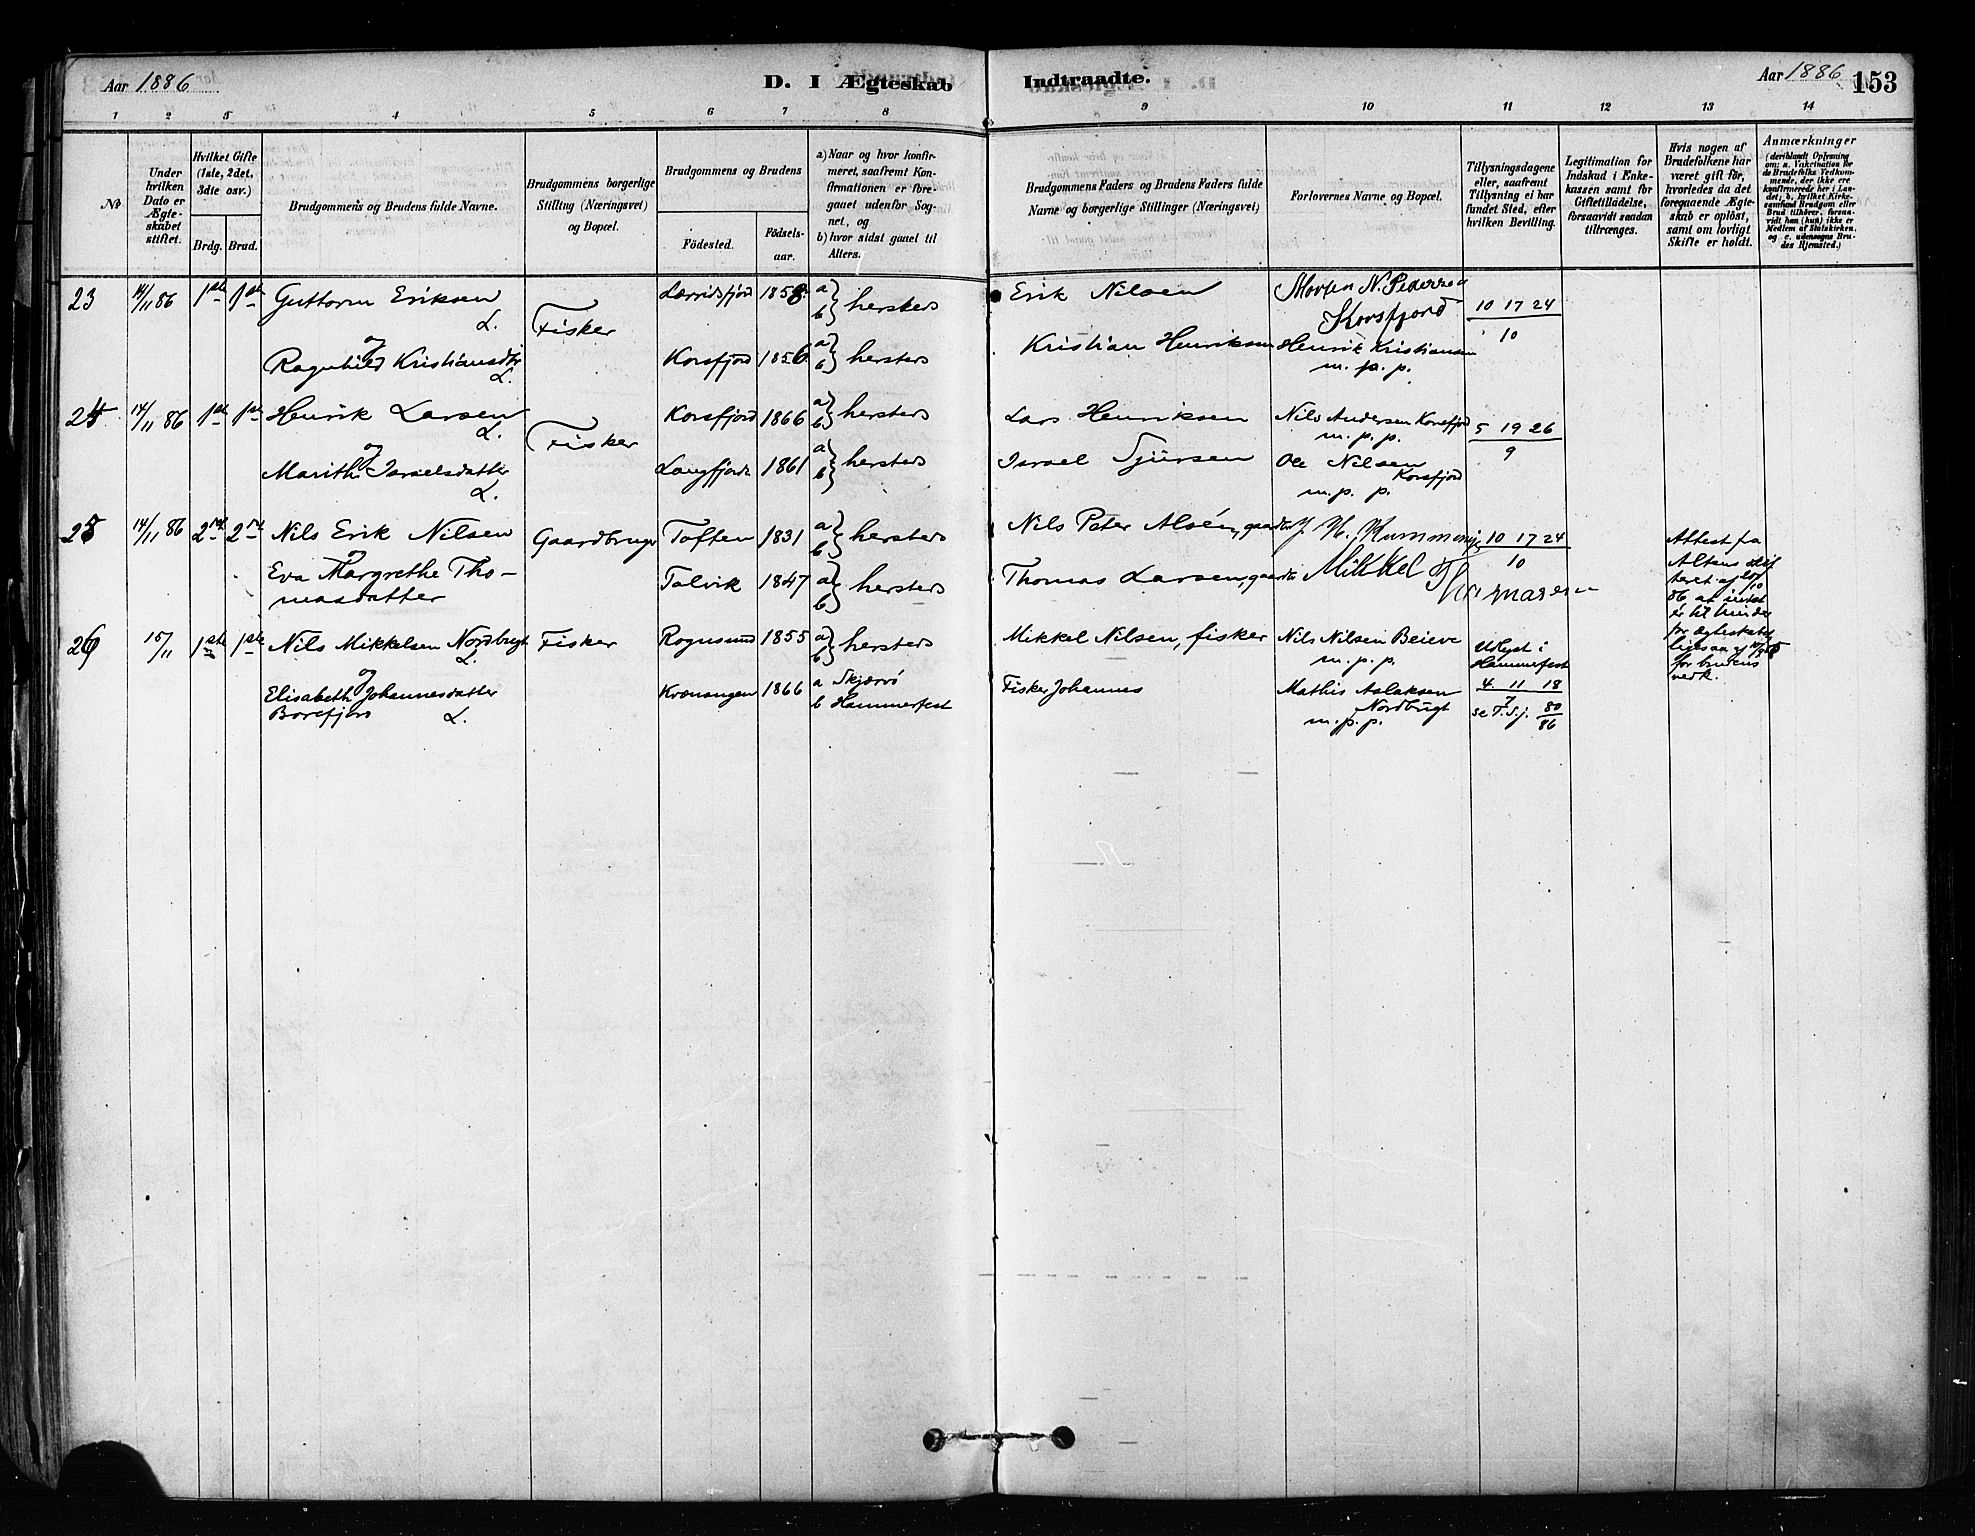 Aar 1886
D. I Ægteskab
Indtraadte.
Aar 1886 153
1 2 3 4 5 6 7 8 9 10 11 12 13 14
No
Under hvilken Dato er Ægteskabet stiftet.
Hvilket Gifte (1ste, 2det, 3die osv.)
Brdg. Brud.
Brudgommens og Brudens fulde Navne.
Brudgommens borgerlige Stilling (Næringsvei) og Bopæl.
Brudgommens og Brudens
Fødested. Fødsels-aar.
a) Naar og hvor konfirmeret, saafremt Konfirmationen er foregaaet udenfor Sognet, og
b) hvor sidst gaaet til Alters.
Brudgommens Faders og Brudens Faders fulde Navne og borgerlige Stillinger (Næringsvei)
Forlovernes Navne og Bopæl.
Tillysningsdagene eller, saafremt Tillysning ei har fundet Sted, efter hvilken Bevilling.
Legitimation for Indskud i Enkekassen samt for Giftetilladelse, forsaavidt saadan tiltrænges.
Hvis nogen af Brudefolkene har været gift før, hvorledes da det foregaaende Ægteskab er opløst, samt om lovligt Skifte er holdt.
Anmærkninger
(deriblandt Oplysning om: a. Vakcination for de Brudefolks Vedkommende, der ikke ere konfirmerede her i Landet; b. hvilket Kirkesamfund Brudgom eller Brud tilhører, forsaavidt han (hun) ikke er Medlem af Statskirken, og c. udensogns Brudes Hjemsted.)
23 14/11 86 1ste 1ste Guttorm Eriksen L. Fisker 1858 a b } hersteds Erik Nilsen Morten N. Pedersen Korsfjord 10 17 24
10
og
Ragnhild Kristiansdtr L. Korsfjord 1856 a b } hersteds Kristian Henriksen Henrik Kristiansen m. p. p.
24 14/11 86 1ste 1ste Henrik Larsen L. Fisker Korsfjord 1866 a b } hersteds Lars Henriksen Nils Andersen Korsfjord m. p. p. 5 19 26
9
og
Marith Israelsdatter L. Langfjord 1861 a b } hersteds Israel Sjursen Ole Nilsen Korsfjord m. p. p.
25 14/11 86 2det 2det Nils Erik Nilsen Gaardbruger Toften 1831 a b } hersteds Nils Peter Alsén, gaardbr 10 17 24
10
og
Eva Margrethe Thomasdatter Talvik 1847 a b } hersteds Thomas Larsen, gaardbr Mikkel Thomasen
Attest fra Altens skifteret af 10 86 at intet er til hinder for ægteskabet ligesaa af for brudens vedk.
26 15/11 1ste 1ste Nils Mikkelsen Nordbugt L. Fisker Rognsund 1855 a b } hersteds Mikkel Nilsen, fisker Nils Nilsen Beieve m. p. p. Utlyst i Hammerfest
4. 11 18
7
se T.S.j. 80/86
og
Elisabeth Johannesdatter Borefjord L. Kvænangen 1866 a Skjærvø
b Hammerfest
Fisker Johannes Mathis Aslaksen Nordbugt m. p. p.